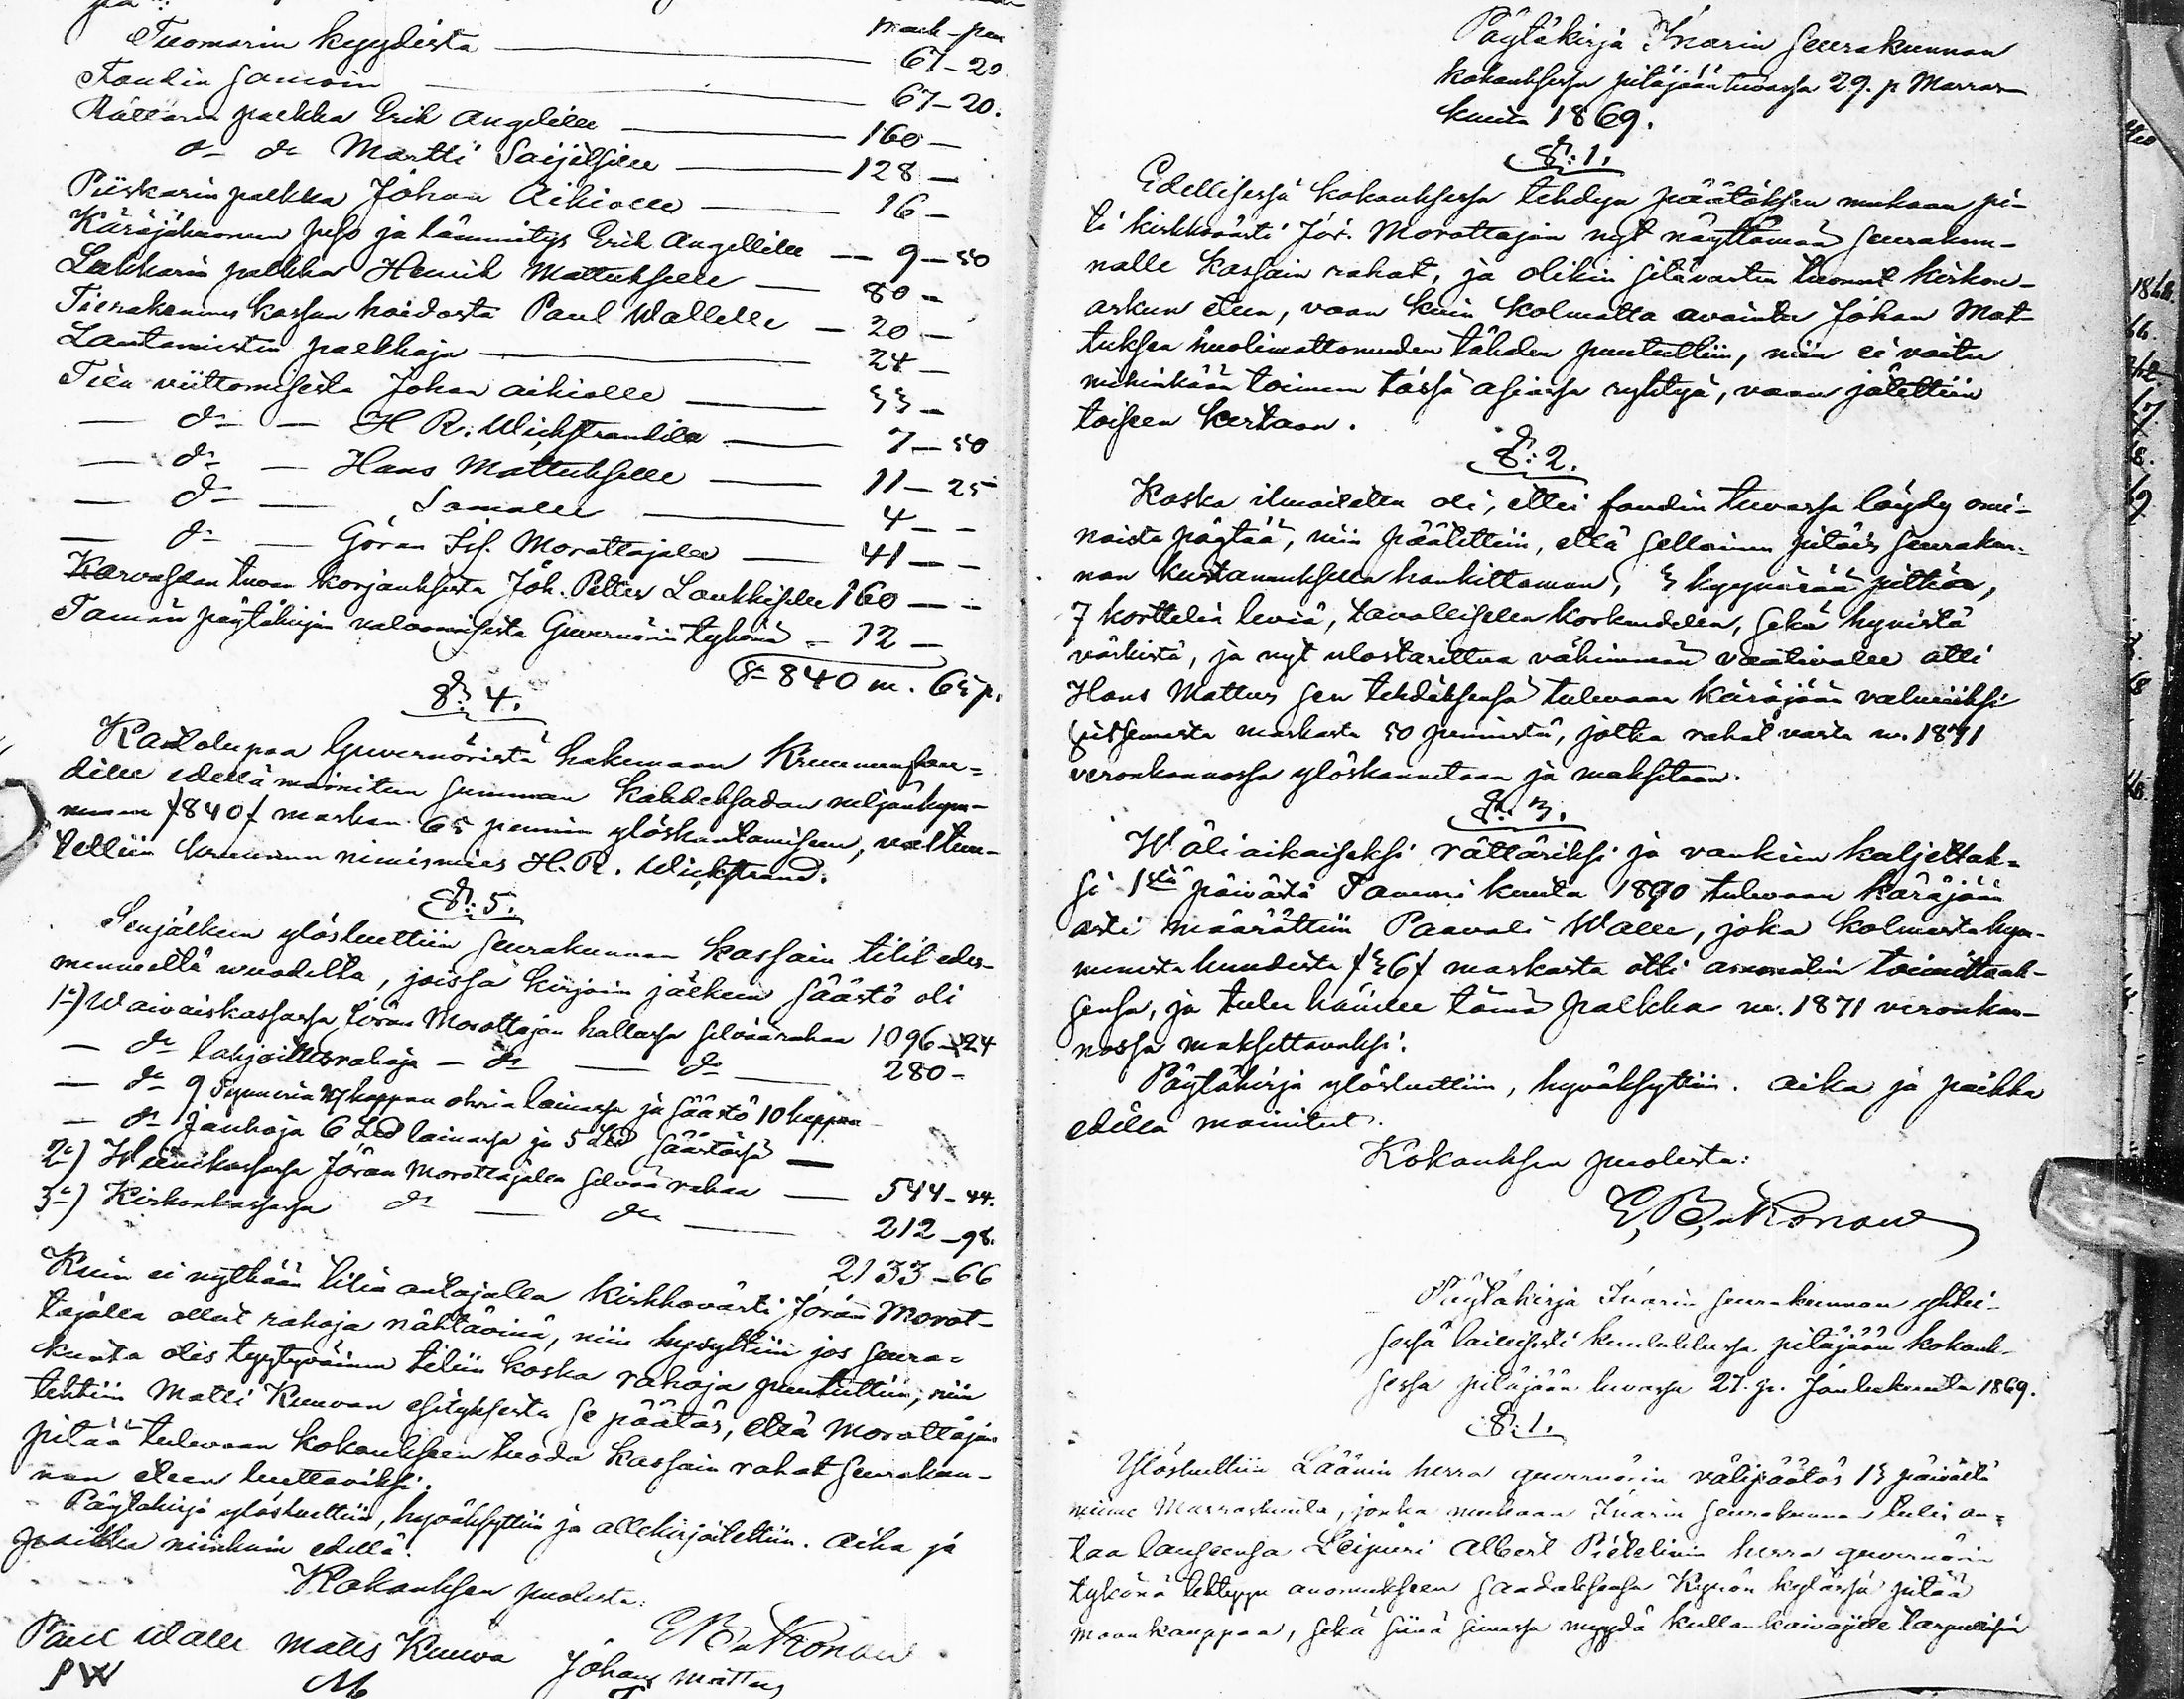 mark - pen
Tuomarin kyydistä — 67 - 20
Foudin samoin — 67 - 20.
Rättärin palkka Erik Angelille — 160 —
do do Martti Saijetsille — 128 —
Piiskarin palkka Johan Aikiolle — 16 —
Käräjähuoneen puhs ja lämmitys Erik Angelille — 9 — 50
Lukkarin palkka Henrik Mattukselle — 80 —
Tierakennus kassan hoidosta Paul Wallelle — 20 —
Lautamiesten palkkoja — 24 —
Tien viittomisesta Johan Aikiolle — 33 —
— do — H R. Wickstrandille — 7 — 50
— do — Hans Mattukselle — 11 — 25
— do — Samalle — 4 — -
— do — Göran Morottajalle — 41 — -
Korvassan tuvan korjauksesta Joh. Petter Laukkiselle 160 — -
Tämän pöytäkirjan valvomisesta Guvernörin tykönä — 12 —
S= 840 m. 65 p.
§: 4.
Kantolupaa Guvernöristä hakemaan Kruununfou=
dille edellä mainitun summan kahdeksadan neljänkym-
menen /840/ markan 65 pennin ylöskantamiseen, valtuu-
tettiin kruunun nimismies H. R. Wickstrand.
§: 5.
Senjälkeen ylösluettiin seurakunnan kassain tilit edes-
menneeltä wuodelta, joissa kirjain jälkeen säästö oli
1o) Waivaiskassassa Jöran Morottajan hallussa selvää rahaa 1096 - 24
— do lahjoitusrahoja — do — do — 280 -
— do 9 Tynneriä kappaa ohria lainassa ja säästö 10 kappaa
— do Jauhoja 6 Ltd lainassa ja 5 Ltd säästössä —
2o) Wiinikassassa Jöran Morottajalla selvää rahaa — 544 - 44.
3o) Kirkonkassassa do — do — 212 - 98.
2133 - 66
Kuin ei nytkään tilin antajalla kirkkovärti Jöran Morot-
tajalla ollut rahoja nähtävinä, niin kysyttiin jos seura=
kunta olis tyytyväinen tiliin koska rahoja puututtiin; niin
tehtiin Matti Kuuvan esityksestä se päätös, että Morottajan
pitää tulevaan kokoukseen tuoda kassain rahat seurakun-
nan eteen luettaviksi.
Pöytäkirja ylösluettiin, hyväksyttiin ja allekirjoitettiin. Aika ja
paikka niinkuin edellä.
Kokouksen puolesta:
Paul Walle Matts Kuuva Johan Mattus
PW M
Pöytäkirja Inarin Seurakunnan
kokouksessa pitäjään tuvassa 29. p Marras-
kuuta 1869.
§: 1.
Edellisessä kokouksessa tehdyn päätöksen mukaan pi-
ti kirkkovärti Jör. Morottajan nyt näyttämän seurakun-
nalle kassain rahat, ja olikin sitävarten tuonut kirkon-
arkun eteen, vaan kuin kolmatta avainta Johan Mat-
tuksen huolimattomuuden tähden puututtiin, niin ei voitu
mihinkään toimeen tässä asiassa ryhtyä, vaan jätettiin
toiseen kertaan.
§: 2.
Koska ilmoitettu oli, ettei foudin tuvassa löydy omi-
naista pöytää, niin päätettiin, että sellainen pitäis seurakun-
nan kustannuksella hankittaman, 3 kyynärää pitkä,
7 korttelia leviä, tavallisella korkeudella, sekä hyvistä
värkistä, ja nyt ulostarittua vähimmän vaativalle otti
Hans Mattus sen tehdäksensä tulevaan käräjään valmiiksi
seitsemästä markasta 50 pennistä, jotka rahat vasta w. 1871
veronkannossa ylöskannetaan ja maksetaan.
§: 3.
Wäliaikaiseksi rättäriksi ja vankien kuljettak=
si 1stä päivästä Tammi kuuta 1870 tulevaan käräjään
asti määrättiin Paavali Walle, joka kolmestakym-
menestä kuudesta /36/ markasta otti ammatin toimittaak-
sensa, ja tulee hänelle tämä palkka w. 1871 veronkan-
nossa maksettavaksi.
Pöytäkirja ylösluettiin, hyväksyttiin. Aika ja paikka
edellä mainitut.
Kokouksen puolesta:
Pöytäkirja Inarin seurakunnan yhtei-
sessä laillisesti kuulutetussa pitäjään kokouk-
sessa pitäjään tuvassa 27. p. Joulukuuta 1869.
§: 1.
Ylösluettiin Läänin herra guvernörin välipäätös 13 päivältä
viime Marraskuuta, jonka mukaan Inarin seurakunnan tulis an=
taa lauseensa Leipuri Albert Pietelinin herra guvernörin
tykönä tehtyyn anomukseen saadaksensa Kyrön kylässä pitää
maankauppaa, sekä siinä sivussa myydä kullankaivajille tarpeellisia